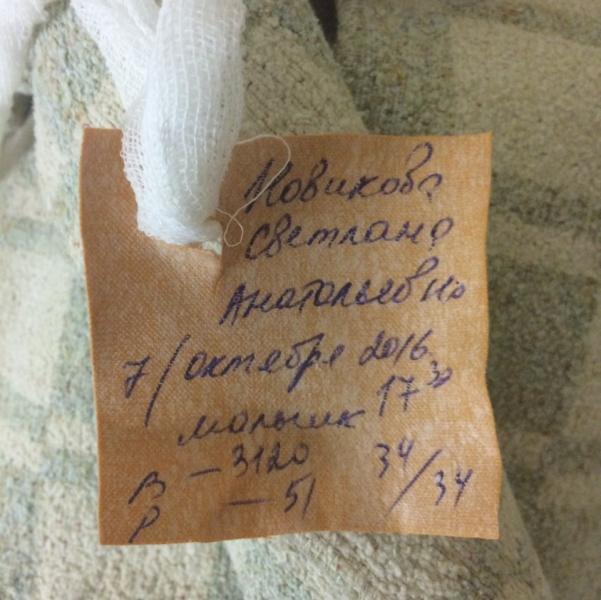 Новикова
Светлана
Анатольевна
7/октября 2016
мальчик 17 30
В — 3120 34/34
Р — 51